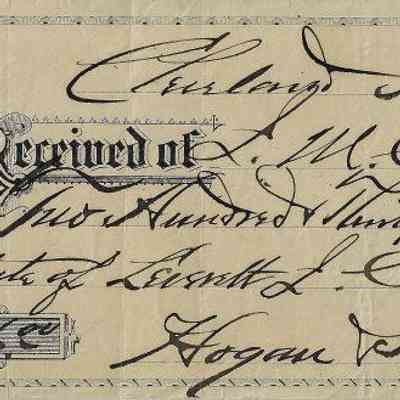 Cleveland
Received of L. M.
Two Hundred & Thir
ate of Leverett L.
Hogan &